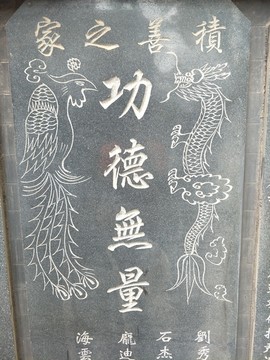 積善之家
功德無量
劉秀
石杰
龐迪
海雲